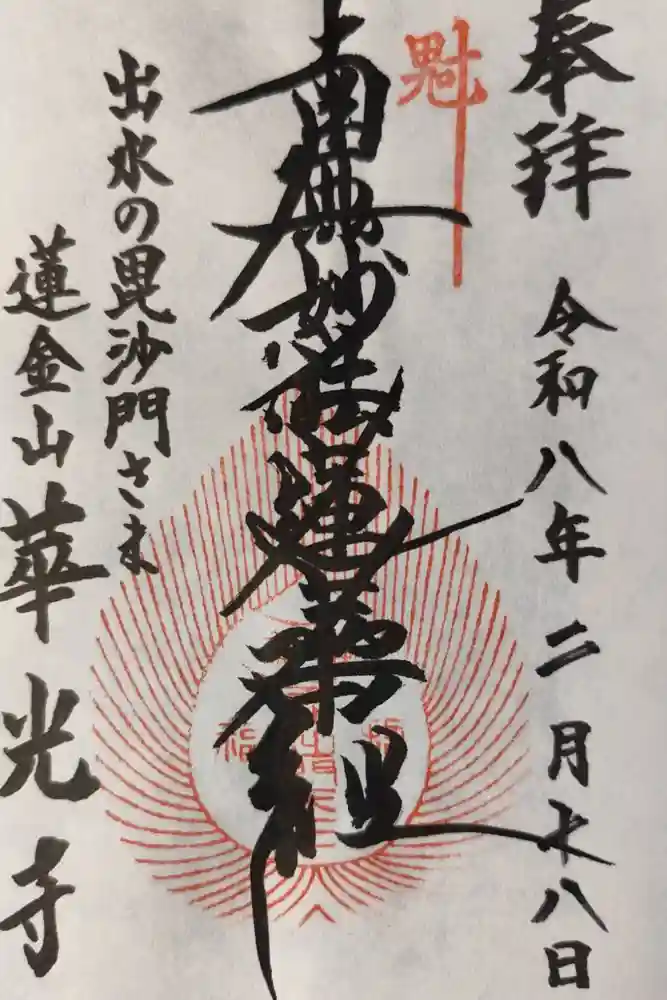 奉拝
令和八年二月十八日
魁
南無妙法蓮華経
出水の毘沙門さま
蓮金山華光寺